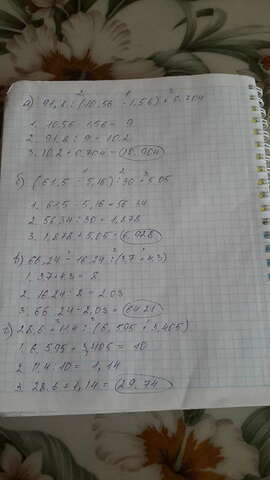 а) 91,8 : (10,56 - 1,56) + 0,704
1. 10,56 - 1,56 = 9
2. 91,8 : 9 = 10,2
3. 10,2 + 0,704 = 10,904
б) (61,5 - 5,16) : 30 + 5,05
1. 61,5 - 5,16 = 56,34
2. 56,34 : 30 = 1,878
3. 1,878 + 5,05 = 6,928
в) 66,24 - 16,24 : (3,7 + 4,3)
1. 3,7 + 4,3 = 8
2. 16,24 : 8 = 2,03
3. 66,24 - 2,03 = 64,21
28,6 + 11,4 : (6,595 + 3,405)
1. 6,595 + 3,405 = 10
2. 11,4 : 10 = 1,14
3. 28,6 + 1,14 = 29,74